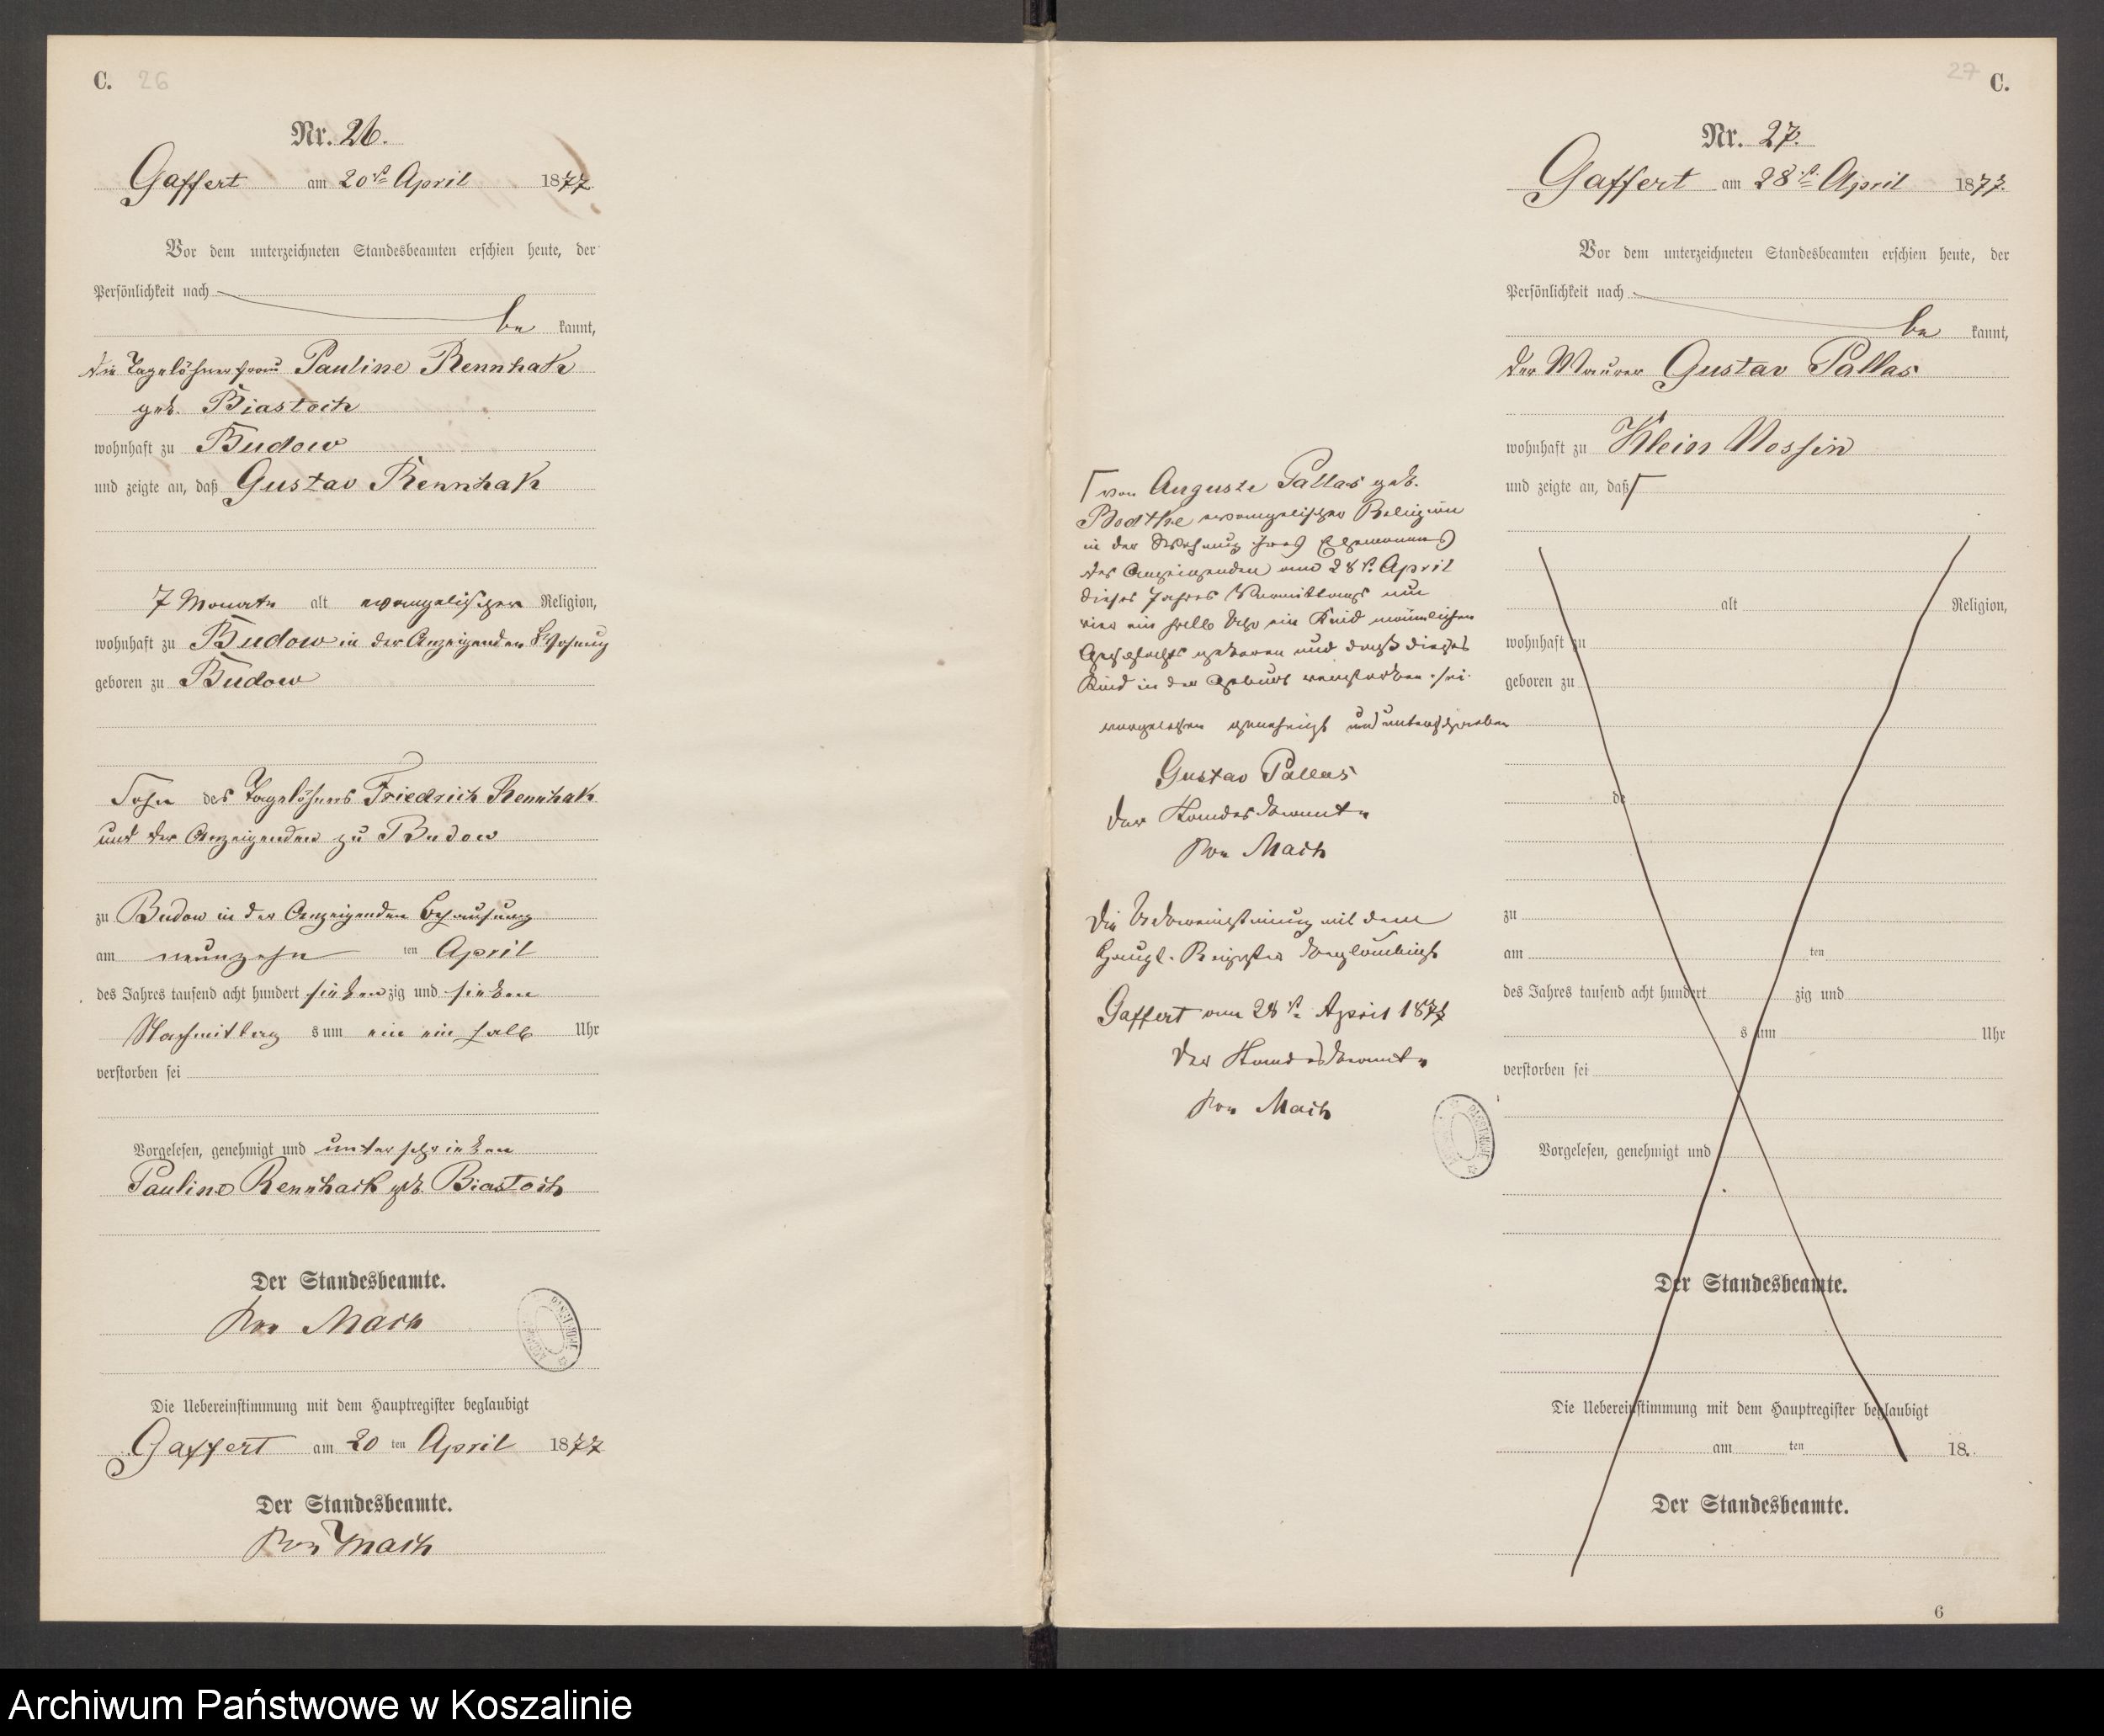 C. 26
Nr. 26.
Gaffert am 20st April 1877
Vor dem unterzeichneten Standesbeamten erschien heute, der
Persönlichkeit nach
be kannt,
die Tagelöhnerfrau Pauline Rennhak
geb. Biastoch
wohnhaft zu Budow
und zeigte an, daß Gustav Rennhak
7 Monate alt evangelischer Religion,
wohnhaft zu Budow in der Anzeigenden Wohnung
geboren zu Budow
Sohn des Tagelöhners Friedrich Rennhak
und der Anzeigenden zu Budow
zu Budow in der Anzeigenden Behausung
am neunzehn ten April
des Jahres tausend acht hundert siebenzig und sieben
Nachmittag s um ein ein halb Uhr
verstorben sei
Vorgelesen, genehmigt und unterschrieben
Pauline Rennhack geb. Biastoch
Der Standesbeamte.
von Mach
Die Uebereinstimmung mit dem Hauptregister beglaubigt
Gaffert am 20 ten April 1877
Der Standesbeamte.
von Mach
27 C.
Nr. 27.
Gaffert am 28st April 1877.
Vor dem unterzeichneten Standesbeamten erschien heute, der
Persönlichkeit nach
be kannt,
der Maurer Gustav Pallas
wohnhaft zu Klein Nossin
und zeigte an, daß
alt Religion,
wohnhaft zu
geboren zu
de
zu
am ten
des Jahres tausend acht hundert zig und
s um Uhr
verstorben sei
Vorgelesen, genehmigt und
Der Standesbeamte.
Die Uebereinstimmung mit dem Hauptregister beglaubigt
am ten 18
Der Standesbeamte.
6
von Auguste Pallas geb.
Bodthe evangelischer Religion
in der Wohnung ihres Ehemannes
des Anzeigenden am 28st. April
dieses Jahres Vormittags um
vier ein halb Uhr ein Kind männlichen
Geschlechts geboren und daß dieses
Kind in der Geburt verstorben sei.
vorgelesen genehmigt und unterschrieben
Gustav Pallas
Der Standesbeamte
von Mach
Die Uebereinstimmung mit dem
Haupt-Register beglaubigt
Gaffert am 28st April 1877
Der Standesbeamte
von Mach
Archiwum Państwowe w Koszalinie